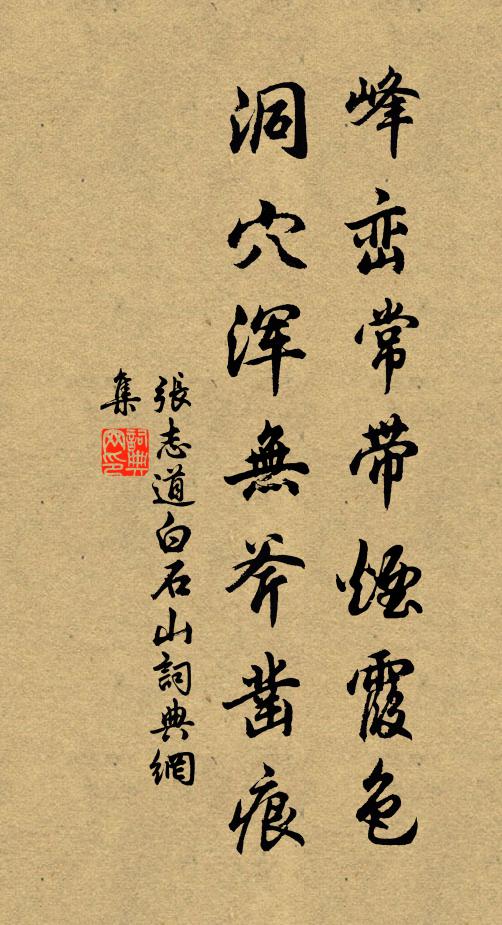 峰峦常带煙霞色
洞穴浑無斧凿痕
張志道白石山詞典網
集
詞典
网印